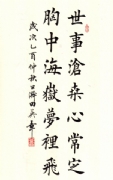 世事滄桑心常定
胸中海嶽夢裡飛
歲次乙酉仲秋